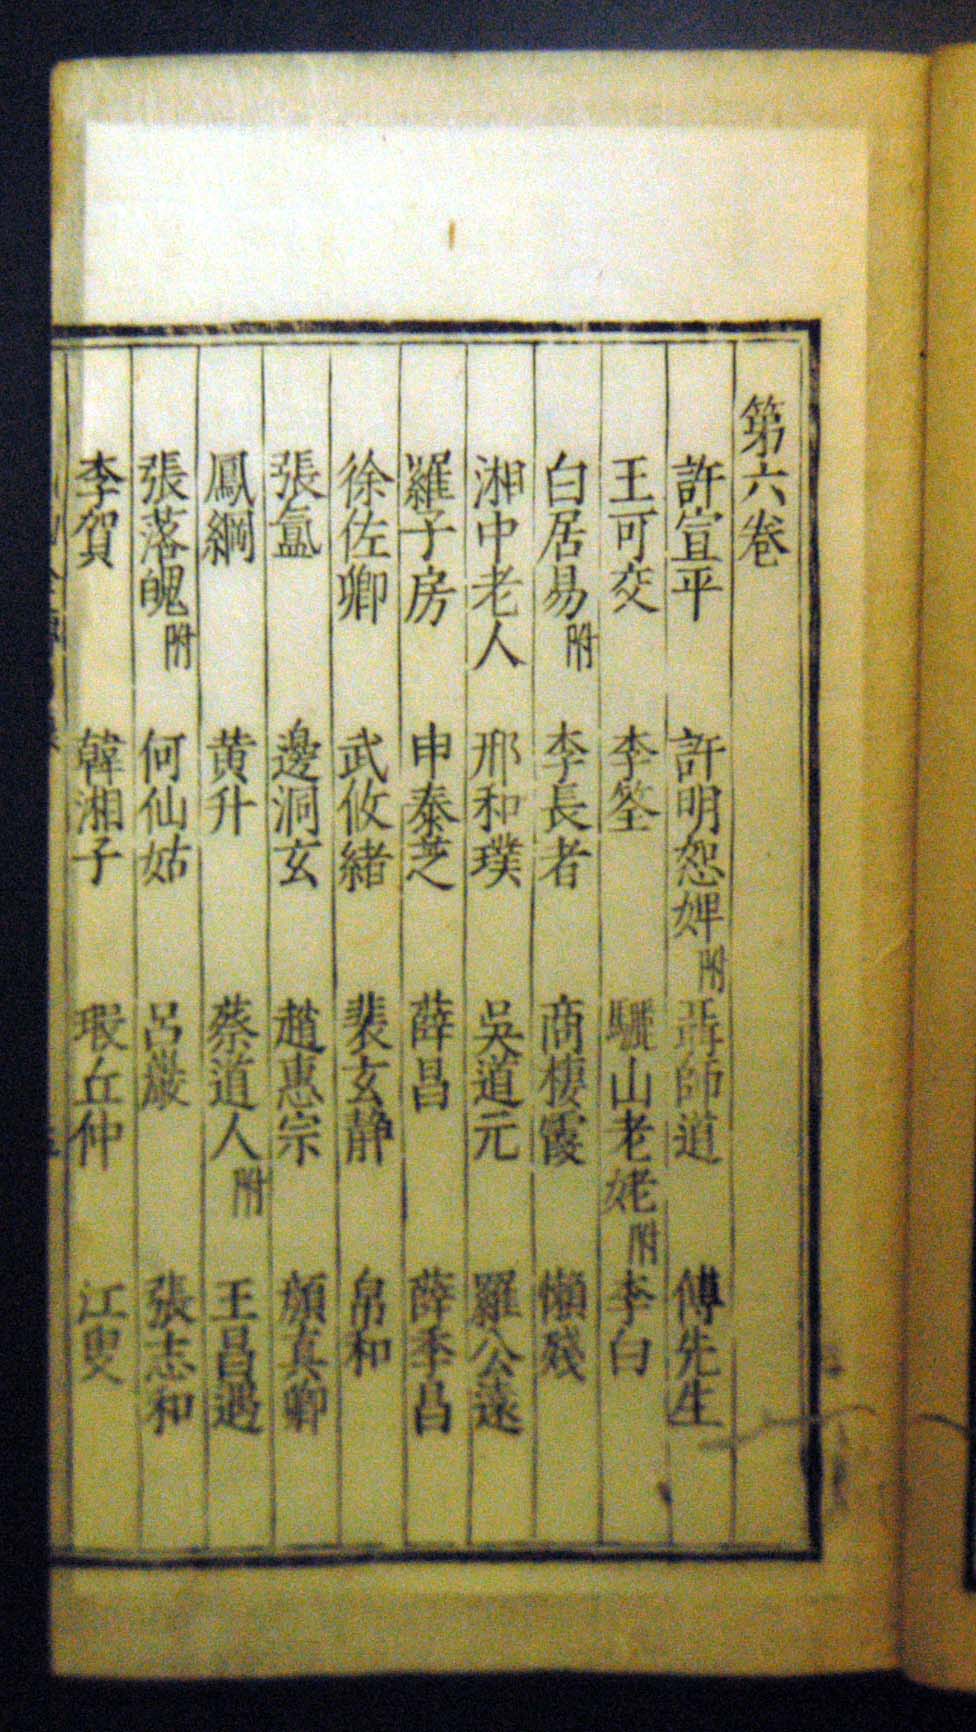 第六卷
許宣平　許明恕婢附　聶師道　傅先生
王可交　李筌　驪山老姥附　李白
白居易附　李長者　商棲霞　懶殘
湘中老人　邢和璞　吳道元　羅公遠
羅子房　申泰芝　薛昌　薛季昌
徐佐卿　武攸緒　裴玄静　帛和
張氲　邊洞玄　趙惠宗　顔真卿
鳳綱　黄升　蔡道人附　王昌遇
張落魄附　何仙姑　呂巖　張志和
李賀　韓湘子　瑕丘仲　江叟